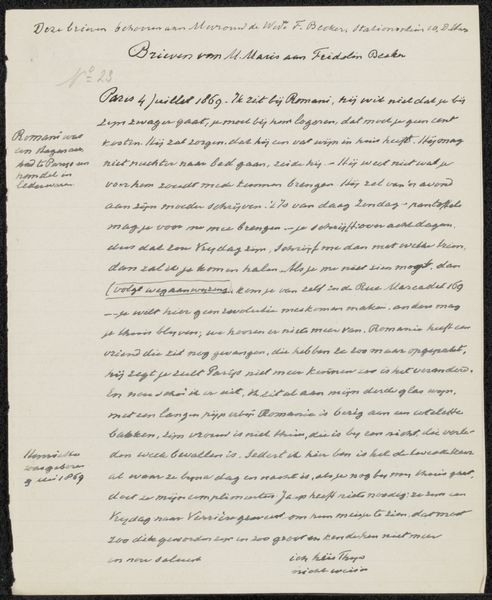 Deze brieven behooren aan Mevrouw de Wed. F. Becker, Stationsplein 10, D. Haag
Brieven van M. Maris aan Fridolin Becker
No 23
Paris 4 Juillet 1869. Ik zit bij Romani, hij wil niet dat je bij
zijn zwager gaat, je moet bij hem logeren, dat moet je geen cent
kosten. Hij zal zorgen, dat hij een vat wijn in huis heeft. Hij mag
niet nuchter naar bed gaan, zeide hij. - Hij weet niet wat je
voor hem zoudt mede kunnen brengen Hij zal van'n avond
aan zijn moeder schrijven. 't Is van daag Zondag - pantoffels
mag je voor me mee brengen - je schrijft: over acht dagen,
dus dat zou Vrijdag zijn, schrijf me dan met welke trein,
dan zal ik je komen halen. Als je me niet zien mogt, dan
(volgt weg aanwijzing) kom je van zelf in de Rue Marcadet 169
- je wilt hier geen revolutie meekomen maken, anders mag
je thuis blijven; we hooren er niets meer van. Romani heeft een
vriend die zit nog gevangen, die hebben ze zoo maar opgepakt,
hij zegt je zult Parijs niet meer kennen zoo is het veranderd.
En nou schei ik er uit, Ik zit al aan mijn derde glas wijn,
met een lange pijp erbij Romani is bezig aan cotelette
bakken, zijn vrouw is niet thuis, die is bij een nicht, die verle-
den week bevallen is. Sedert ik hier ben is het de
al waar ze bijna dag en nacht is, als je nog bij mij thuis gaat,
doet ze mijn complimenten. Jaap heeft niets noodig ze zijn
Vrijdag naar Verrière geweest om hun meisje te zien, dat moet
zoo dik geworden zijn en zoo groot en kende hen niet meer
en nou saluut
ich heis Thys
nicht weiss
Romani was
een Hagenaar
had te Parijs een
handel in
lederwaren
Henriette
was geboren
9 Mei 1869